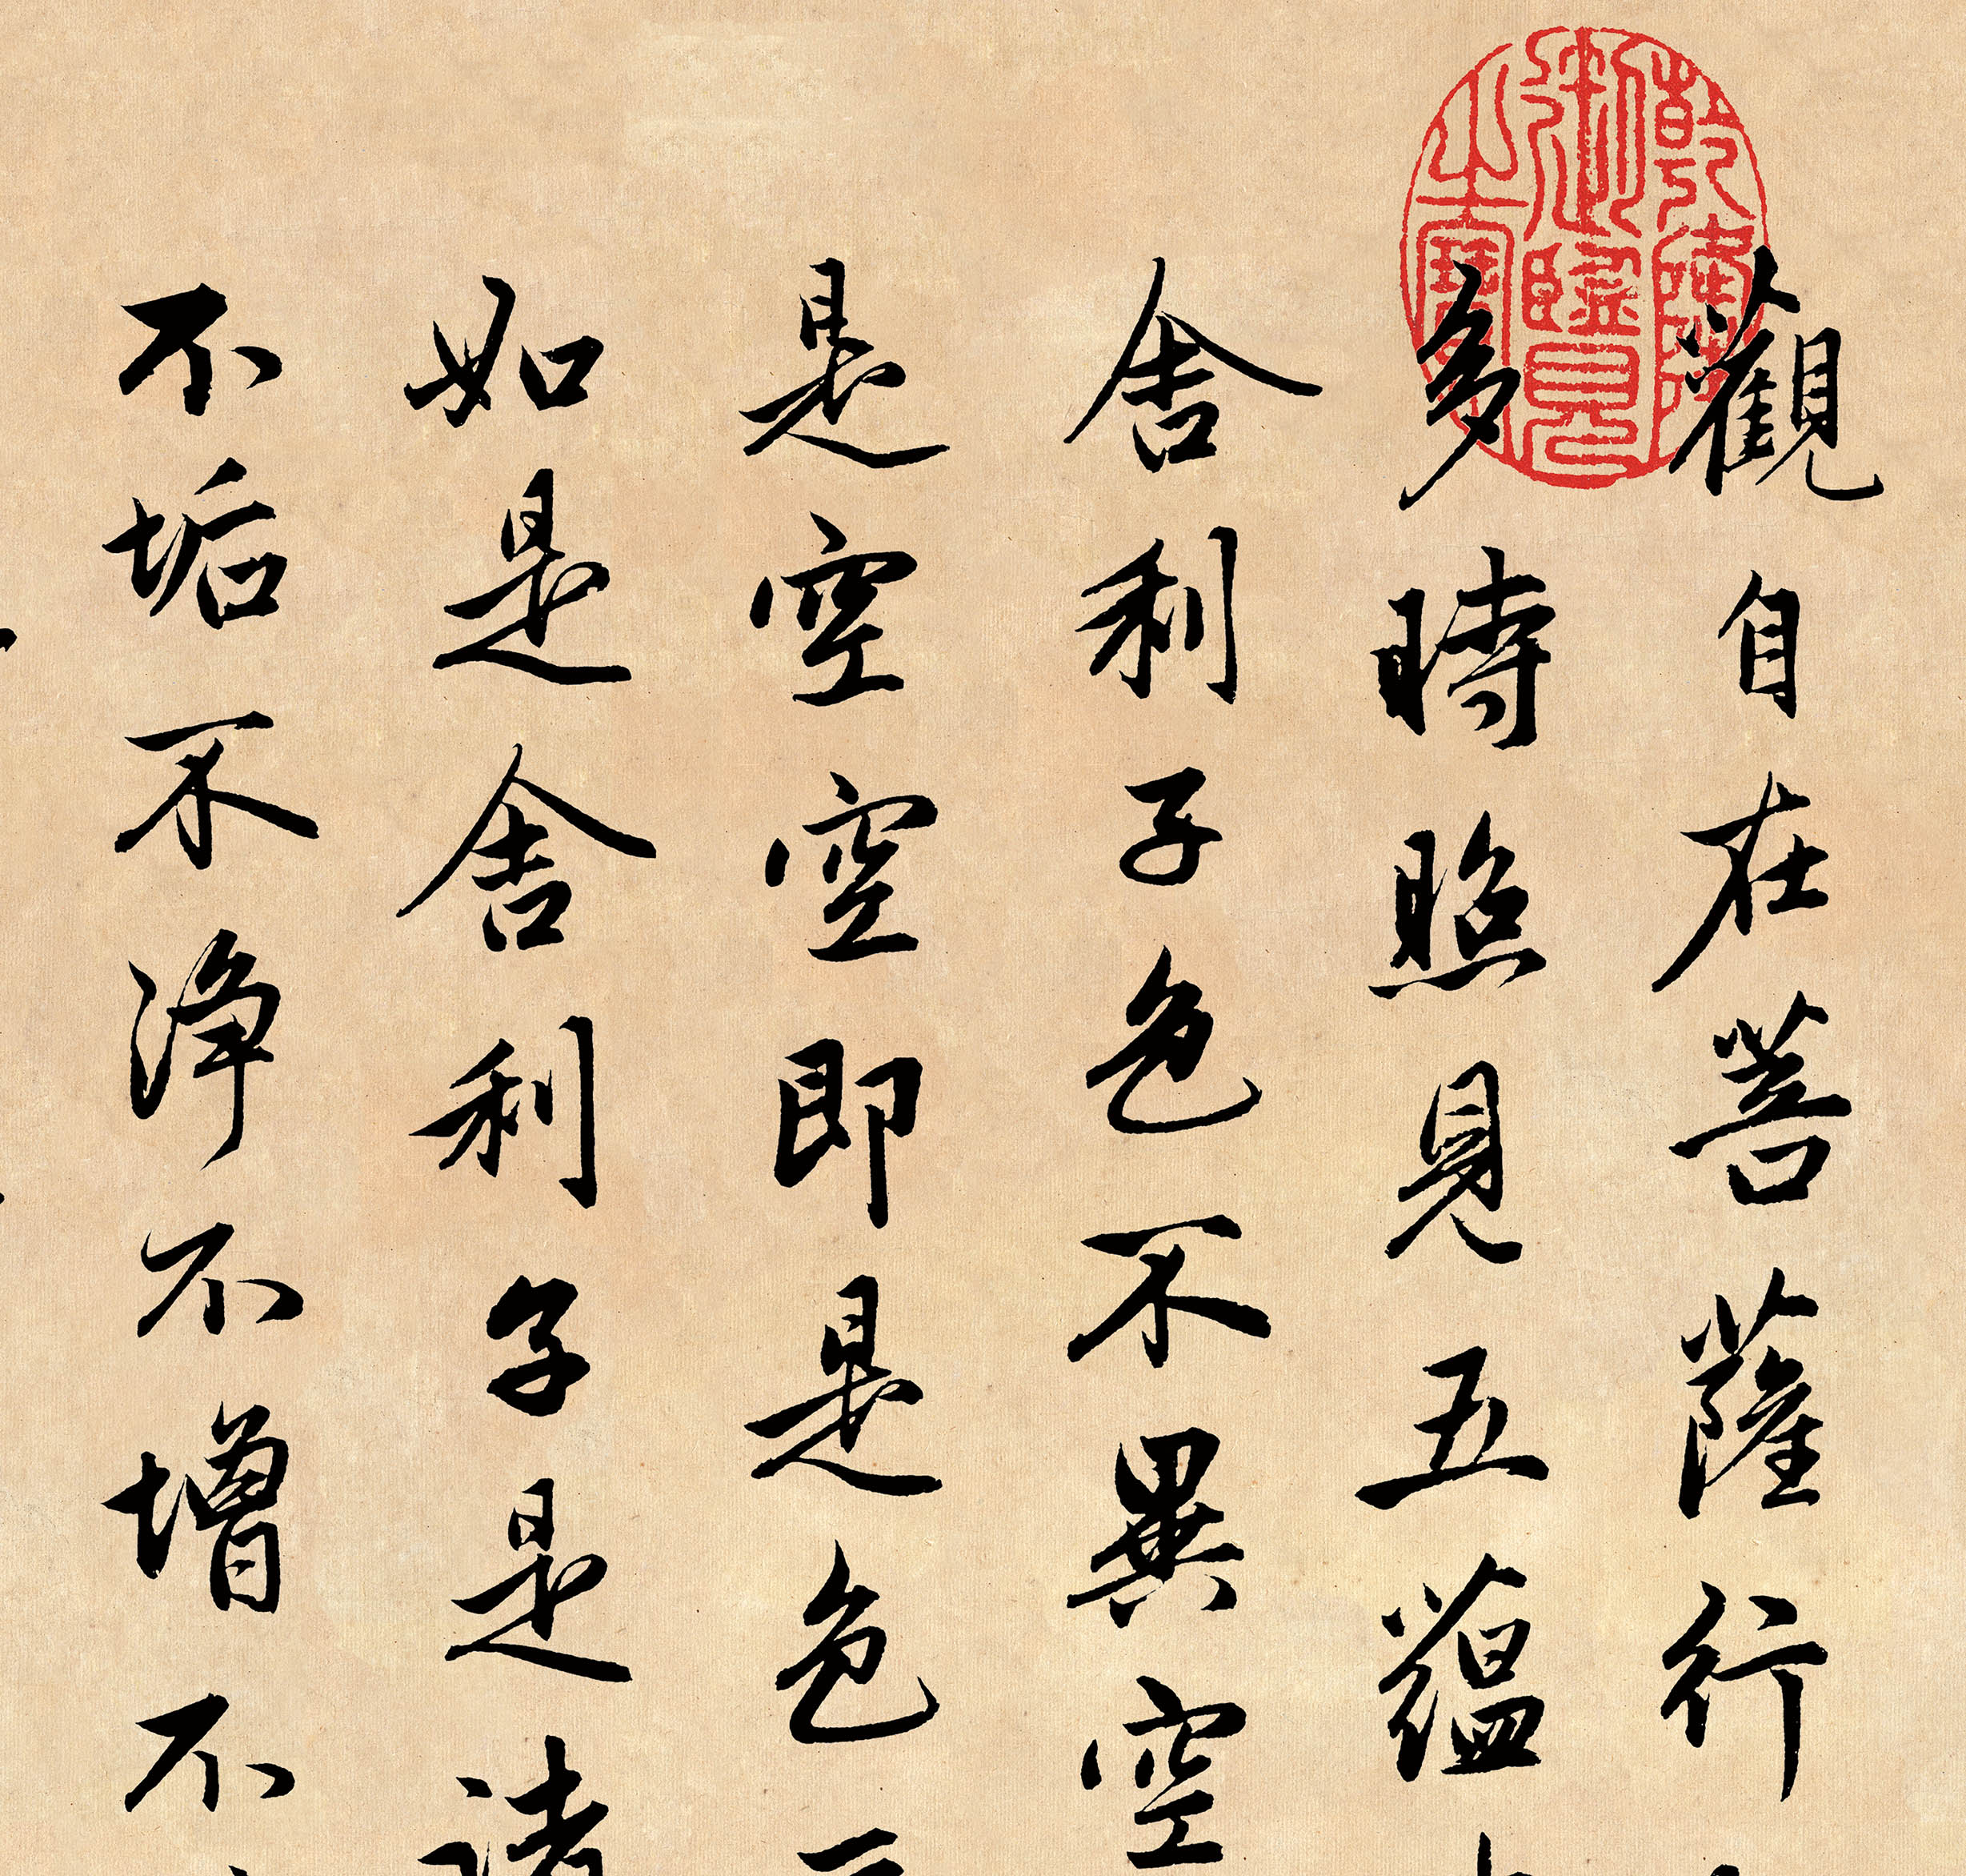 乾隆御覽之寶
觀自在菩薩行
多時照見五蘊
舍利子色不異空
是空空即是色
如是舍利子是諸
不垢不淨不增不